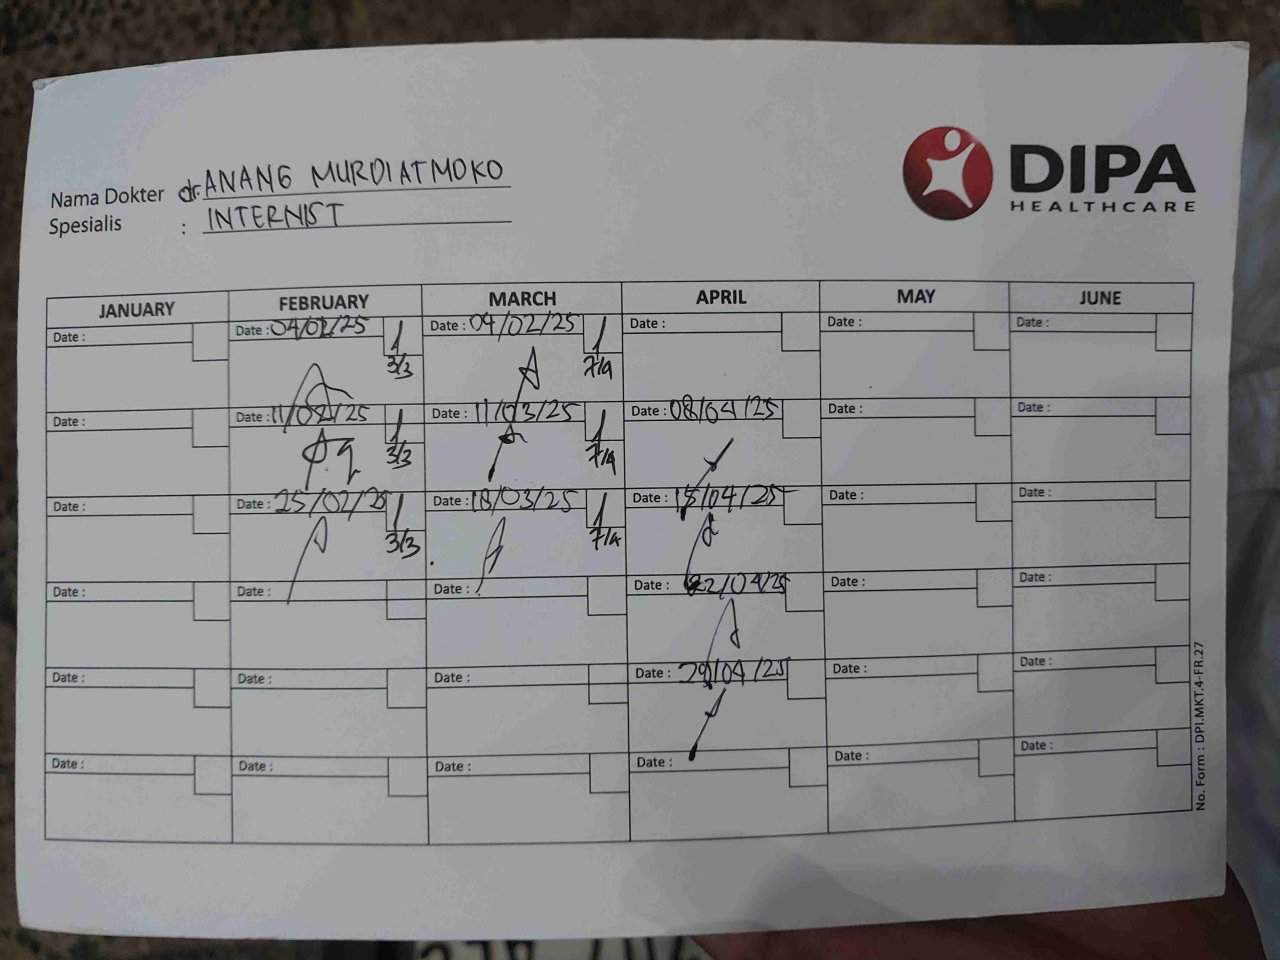 DIPA
HEALTHCARE
Nama Dokter dr. ANANG MURDIATMOKO
Spesialis : INTERNIST
JANUARY FEBRUARY MARCH APRIL MAY JUNE
Date : Date : 04/02/25 Date : 04/02/25 Date : Date : Date :
3/3 7/4
Date : Date : 11/02/25 Date : 11/03/25 Date : 08/04/25 Date : Date :
3/3 7/4
Date : Date : 25/02/25 Date : 18/03/25 Date : 15/04/25 Date : Date :
3/3 7/4
Date : Date : Date : Date : 22/04/25 Date : Date :
Date : Date : Date : Date : 29/04/25 Date : Date :
Date : Date : Date : Date : Date : Date :
No. Form : DPI.MKT.4-FR.27